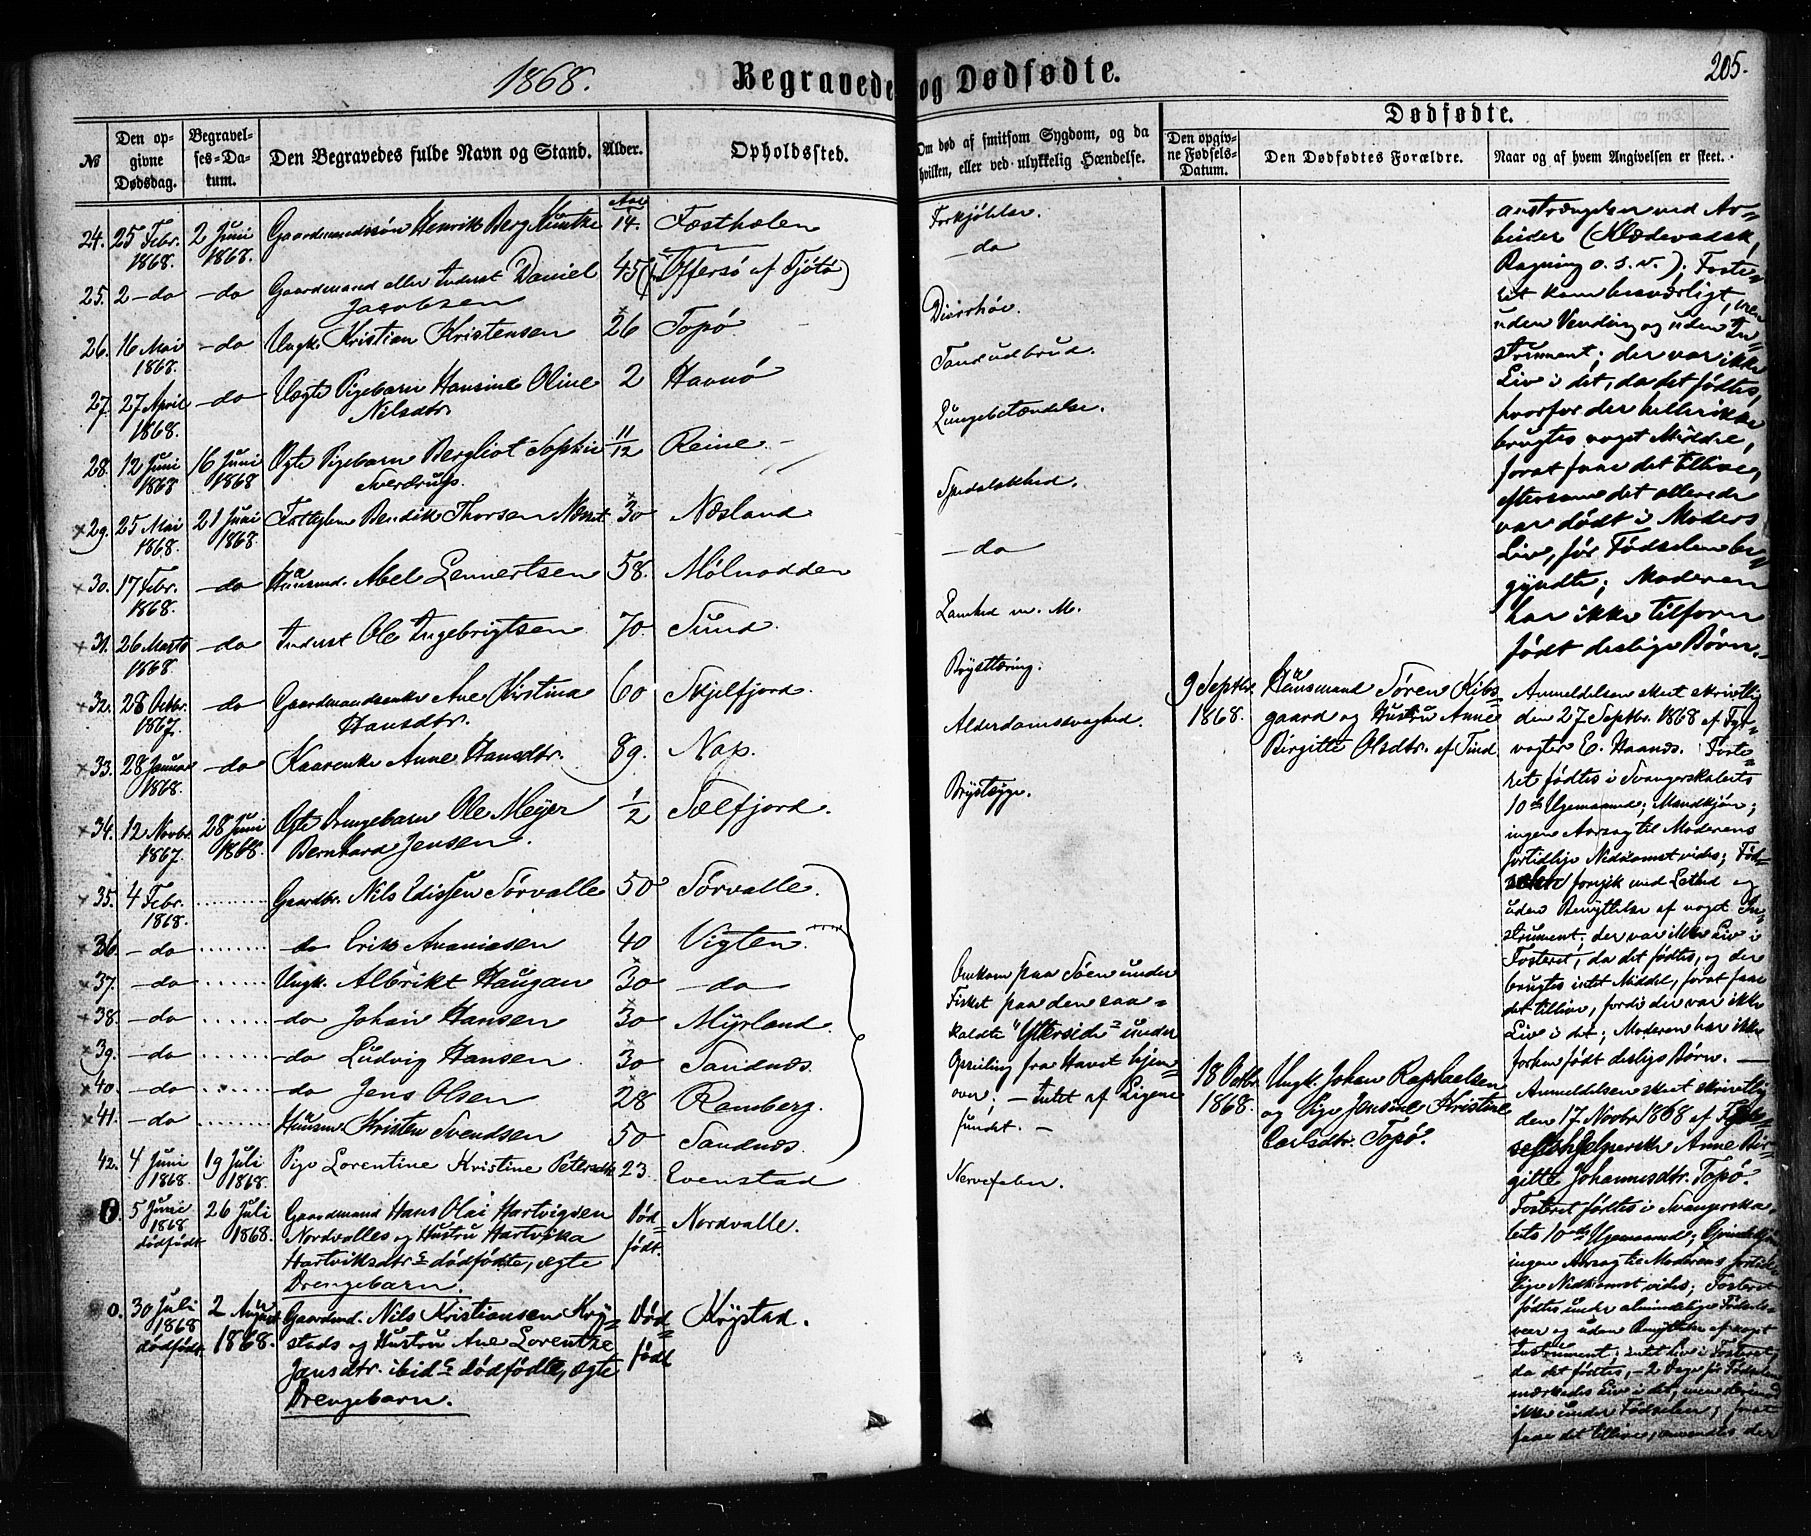 1868.
Begravede og Dødfødte.
205.
№
Den opgivne Dødsdag.
Begravelses-Datum.
Den Begravedes fulde Navn og Stand.
Alder.
Opholdssted.
Om død af smitsom Sygdom, og da hvilken, eller ved ulykkelig Hændelse.
Dødfødte.
Den opgivne Fødsels-Datum.
Den Dødfødtes Forældre.
Naar og af hvem Angivelsen er skeet.
24. 25 Febr. 1868. 2 Juni 1868. Gaardmandssön Henrik Berg Aar 14. Forkjölelse.
25. 2 - do - do Gaardmand eller Inderst Daniel Jacobsen 45 (Offersö af Tjötö) - do
26. 16 Mai 1868. - do Ungk. Kristian Kristensen 26 Topö Diarrhöe.
27. 27 April 1868. - do Ægte Pigebarn Hansine Oline Nilsdtr. 2 Havnö Tandudbrud.
28. 12 Juni 1868 16 Juni 1868 Ægte Pigebarn Bergliot Sophie Sverdrup. 11/12 Reine. Lungebetændelse.
29. 25 Mai 1868. 21 Juni 1868. Bendik Thorsen 30 Næsland Spedalskhed.
30. 17 Febr. 1868. - do Huusmd. Abel Lennertsen 58. Mölnodden - do
31. 26 Marts 1868. - do Inderst Ole Ingebrigtsen 70. Sund. Lamhed m. M.
32. 28 Octbr. 1867. - do Gaardmandsenke Ane Kirstina Hansdtr. 60 Skjelfjord. Brysttæring.
33. 28 Januar 1868. - do Kaarenke Anne Hansdtr. 89. Nap. Alderdomssvaghed.
34. 12 Novbr. 1867. 28 Juni 1868. Ægte Drengebarn Ole Meyer Bernhard Jensen. 1/2 Selfjord. Brystsyge.
35. 4 Febr. 1868. Gaardbr. Nils Edissen Sörvalle 50 Sörvalle.
36. - do do Erik Ananiasen 40 Vigten.
37. - do Ungk. Albrikt Haugan 30 - do
38. - do do Johan Hansen 30 Myrland.
39. - do - do Ludvig Hansen 30 Sandnæs.
40. - do - do Jens Olsen 28 Ramberg.
41. - do Huusm. Kristen Svendsen 50 Sandnæs.
Omkom paa Söen under
Fisket paa den saa-
kaldte "Yttersiden" under
Opseiling fra Havet hjem-
over. - Intet af Ligene
fundet. -
42. 4 Juni 1868. 19 Juli 1868. Pige Lorentine Kristine Petersdtr. 23. Evenstad Nervefeber.
0. 5 Juni 1868 dödfödt 26 Juli 1868. Gaardmand Hans Olai Hartvigsen
Nordvalles og Hustru Hartvika
Hartviksdtr.s dödfödte, ægte
Drengebarn.
Död-
födt.
Nordvalle.
0. 30 Juli 1868 dödfödt. 2 August 1868. Gaardmd. Nils Kristiansen Kry-
stads og Hustru Ane Lorentze
Jansdtr. ibid.s dödfödte, ægte
Drengebarn.
Död-
födt
Krystad.
anstrængelser ved Ar-
beider (Klædevadsk,
Ragning o. s. v.); Foste-
ret kom besværligt, men
uden Vending og uden In-
strument; der var ikke
Liv i det, da det födtes,
hvorfor der heller ikke
brugtes noget Middel,
forat faae det tillive,
eftersom det allerede
var dödt i Moders
Liv, för Födselen be-
gyndte; Moderen
har ikke tilforn
födt deslige Börn.
9 Septbr. 1868.
Huusmand Sören Kibs-
gaard og Hustru Anne
Birgitte Olsdtr. af Tind
Anmeldelsen skeet skriftlig
den 27 Septbr. 1868 af Fyr-
vogter E. Haanes. Foste-
ret födtes i Svangerskabets
10de Ugemaaned; Mandkjön;
ingen Aarsag til Moderens
fortidlige Nedkomst vides; Föd-
selen foregik med Lethed og
uden Benyttelse af noget In-
strument; der var ikke Liv i
Fosteret, da det födtes, og der
brugtes intet Middel, forat faae
det tillive, fordi der var ikke
Liv i det; Moderen har ikke
forhen födt deslige Börn. -
18 Octbr. 1868.
Ungk. Johan Raphaelsen
og Pige Jensine Kristine
Carlsdtr. Topö.
Anmeldelsen skeet skriftlig
den 17. Novbr. 1868 af
Anne Bir-
gitte Johannesdtr. Topö.
Fosteret födtes i Svangerska-
bets 10de Ugemaaned; Qvindekjön;
ingen Aarsag til Moderens fortid-
lige Nedkomst vides; Fosteret
födtes under almindelige Födsels-
veer og uden Benyttelse af noget
Instrument; intet Liv i Fosteret,
da det födtes, - 2 Dage för Födselen
mærkedes Liv i det, men derimod
ikke under Födselen; forat
faae det tillive, anvendtes der